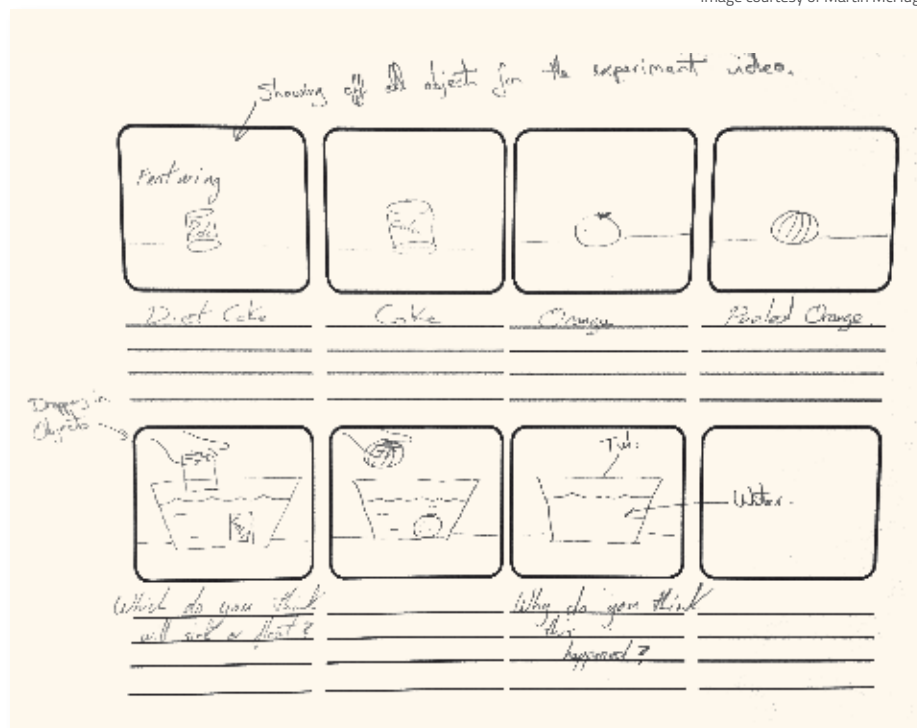 Image courtesy of Martin McHug
Showing off all objects for the experimant video.
Featuring
Diet Coke
Coke
Orange
Peeled Orange
Dropping in
Objects
Tub.
Water.
Which do you think
will sink or float?
Why do you think
this
happened?